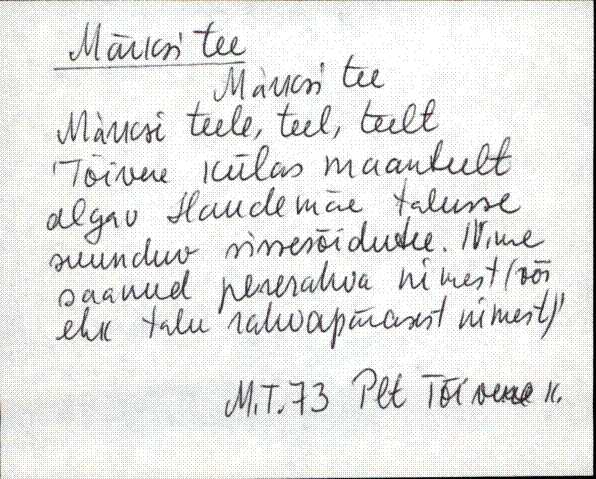 Märksi tee
Märksi tee
Märksi teele, teel, teelt
'Tõivere külas maanteelt
algav Haudemäe talusse
suunduv sissesõidutee. Nime
saanud pererahva nimest (või
ehk talu rahvapärasest nimest)'
M.T.73 Plt Tõivere k.